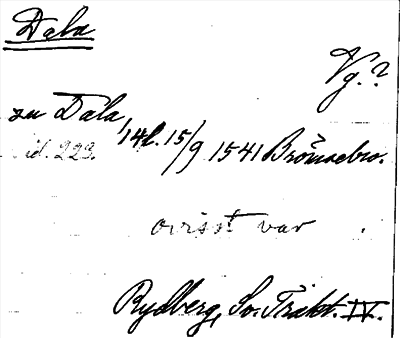 Dala
Vg.?
zu Dala,
id. 223. 14 15/9 1541 Brömsebro.
ovisst var
Rydberg, Sv. Trakt. IV.